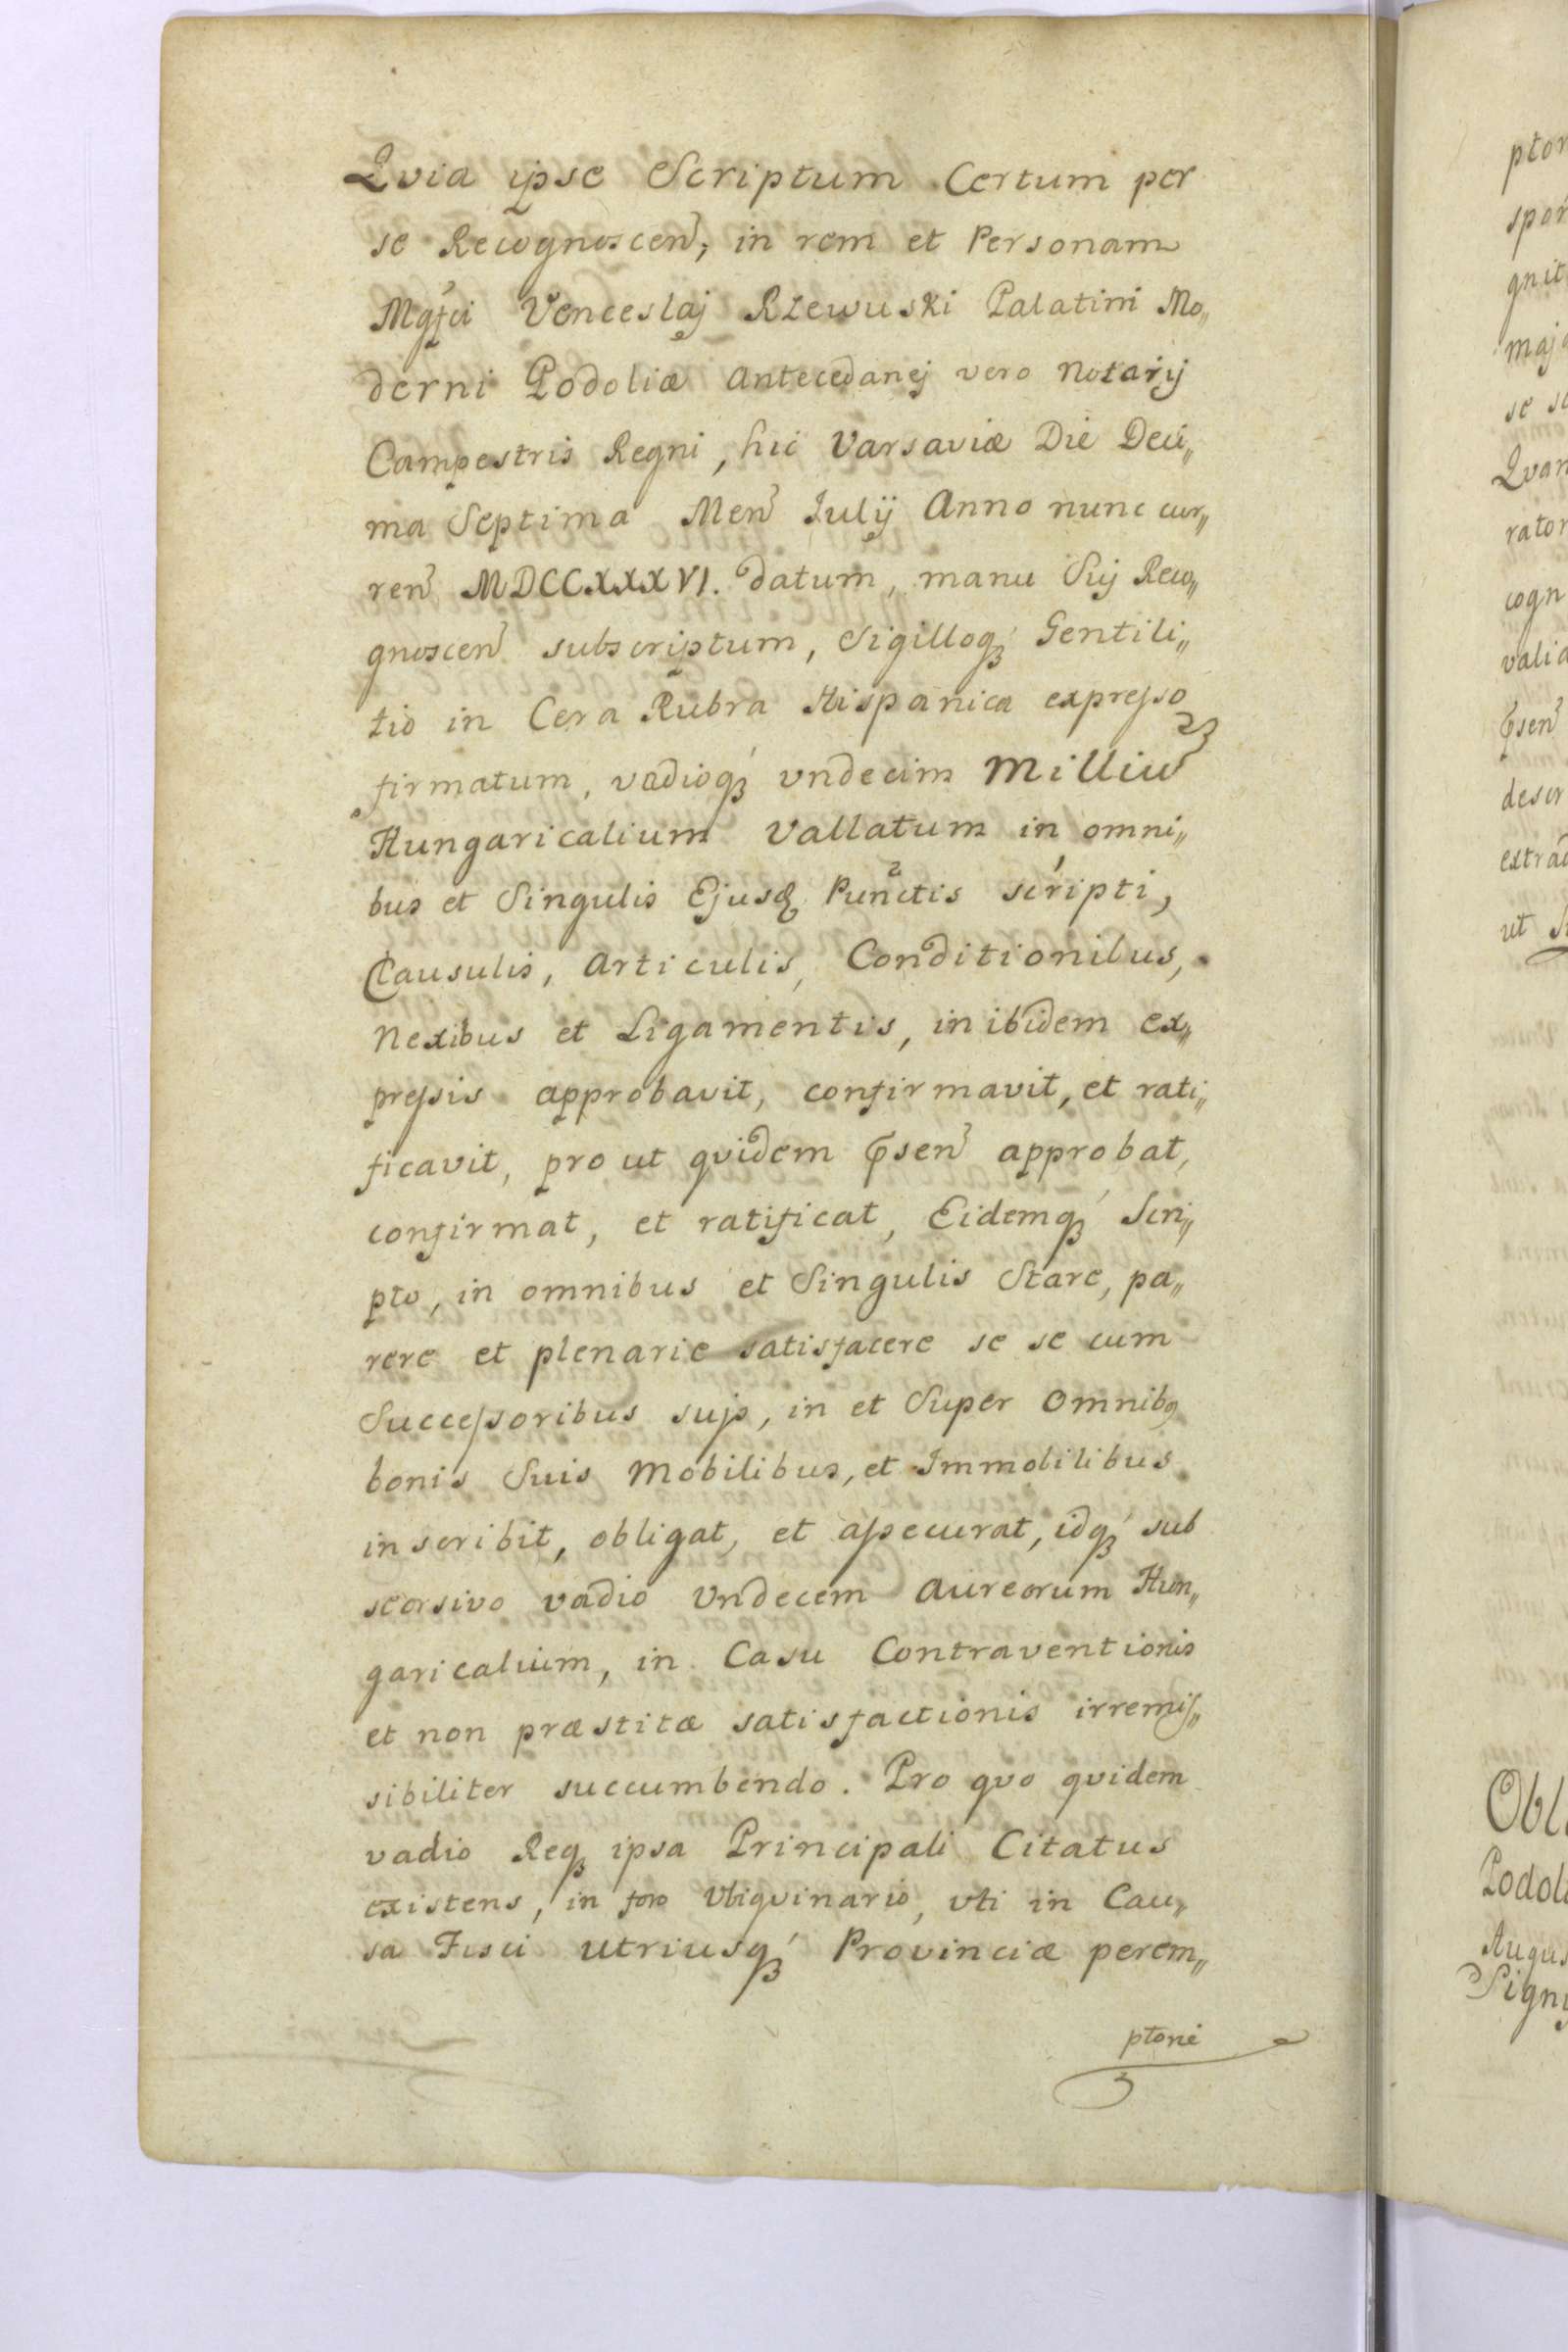 Qvia ipse Scriptum Certum per
se Recognoscen, in rem et Personam
Mgfci Venceslaj Rzewuski Palatini Mo„
derni Podoliæ Antecedanej vero Notarij
Campestris Regni, hic Varsaviæ Die Deci„
ma Septima Men Julij Anno nunc cur„
ren MDCCXXXVI. datum, manu Sui Reco„
gnoscen subscriptum, Sigilloq Gentili„
tio in Cera Rubra Hispanica expresso
firmatum, vadioq vndecim Milliu
Hungaricalium Vallatum in omni„
bus et Singulis Ejusd Punctis scripti,
Clausulis, Articulis, Conditionibus,
Nexibus et Ligamentis, in ibidem ex„
pressis approbavit, confirmavit, et rati„
ficavit, pro ut qvidem Psen approbat,
confirmat, et ratificat, Eidemq Scri„
pto, in omnibus et Singulis Stare, pa„
rere et plenarie satisfacere se se cum
Successoribus sujs, in et Super Omnibq
bonis Suis Mobilibus, et Immobilibus
inscribit, obligat, et assecurat, idq sub
seorsivo vadio Vndecem Aureorum Hun„
garicalium, in Casu Contraventionis
et non præstitæ satisfactionis irremis„
sibiliter succumbendo. Pro qvo qvidem
vadio Req ipsa Principali Citatus
existens, in foro Vbiqvinario, vti in Cau„
sa Fisci utriusq Provinciæ perem„
ptorie
ptor
spon
gnit
majo
se sc
Qvan
rator
cogn
valid
Psen
descr
extra
ut
Obl
Podol
Augus
Sign